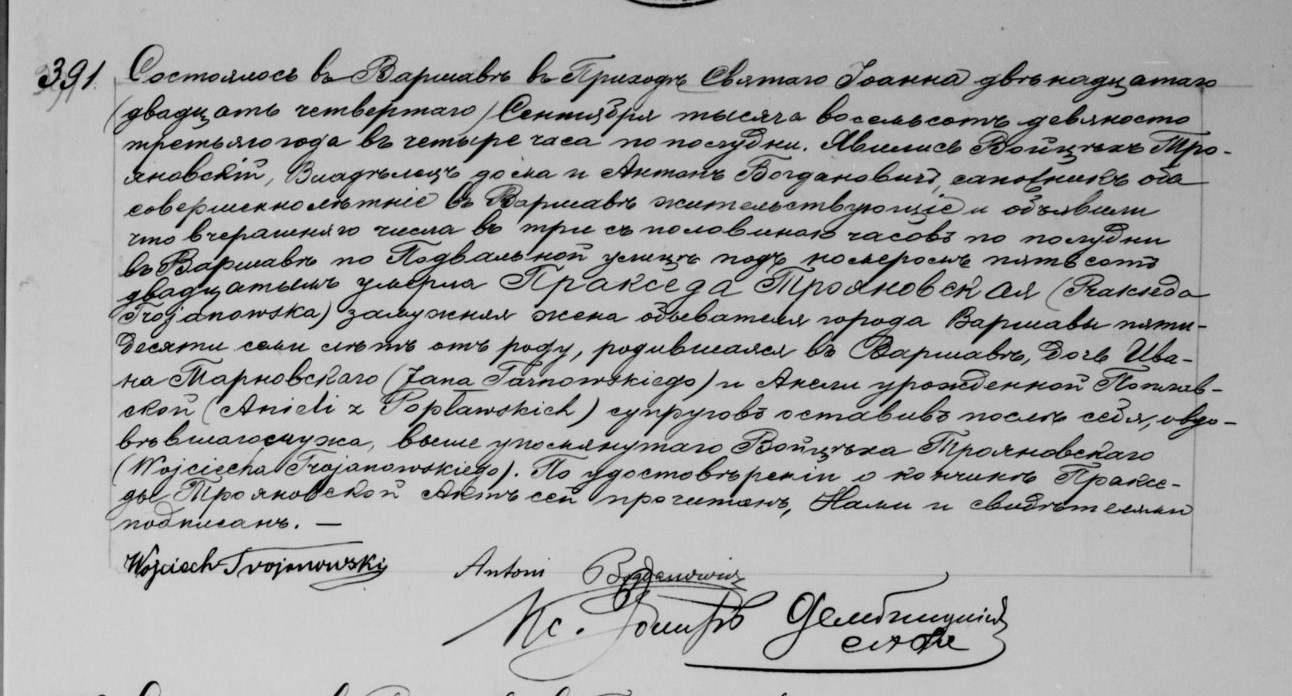 391. Состоялось въ Варшавѣ въ Приходѣ Святаго Іоанна двѣнадцатаго
(двадцать четвертаго) Сентября тысяча восемьсотъ девяносто
третьяго года въ четыре часа по полудни. Явились Войцѣхъ Тро-
яновскій, Владѣлецъ дома и Антонъ Богдановичъ, сапожникъ оба
совершеннолѣтніе въ Варшавѣ жительствующіе и объявили
что вчерашняго числа въ три съ половиною часовъ по полудни
въ Варшавѣ по Подвальной улицѣ подъ номеромъ пятьсотъ
двадцатымъ умерла Пракседа Трояновская (Prakseda
Trojanowska) замужняя жена обывателя города Варшавы пяти-
десяти семи лѣтъ отъ роду, родившаяся въ Варшавѣ, дочь Ива-
на Тарновскаго (Jana Tarnowskiego) и Анели урожденной Поплав-
ской (Anieli z Popławskich) супруговъ оставивъ послѣ себя, овдо-
вѣвшаго мужа, выше упомянутаго Войцѣха Трояновскаго
(Wojciecha Trojanowskiego). По удостовѣреніи о кончинѣ Праксе-
ды Трояновской Актъ сей прочитанъ, Нами и свидѣтелями
подписанъ. —
Wojciech Trojanowski Antoni Bogdanowicz
Кс.